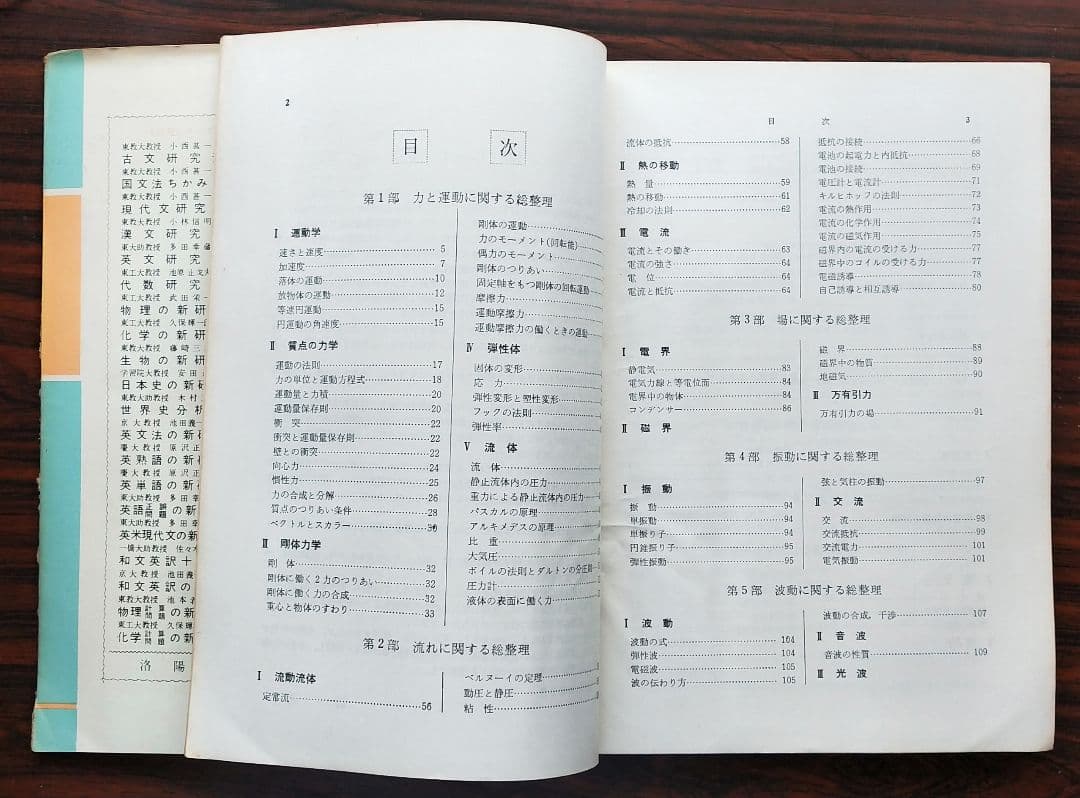 東教大教授 小西甚一
古文研究
東教大教授 小西甚一
国文法ちかみ
東教大教授 小西甚一
現代文研究
東教大教授 小林信明
漢文研究
東大助教授 多田幸蔵
英文研究
東工大教授
代数研究
東工大教授 武田栄一
物理の新研
東工大教授 久保輝一郎
化学の新研
東教大教授 藤崎三
生物の新研
学習院大教授 安田
日本史の新研
東教大助教授 木村
世界史分析
京大教授 池田義一
英文法の新研
慶大教授 原沢正
英熟語の新研
慶大教授 原沢正
英単語の新研
東大助教授 多田幸
英語正誤問題の新
東大助教授 多田幸
英米現代文の新
一橋大助教授 佐々木
和文英訳十
京大教授 池田義
和文英訳の
東教大教授 池本
物理計算問題の新
東工大教授 久保輝
化学計算問題の新
洛陽
2
目次
第1部 力と運動に関する総整理
Ⅰ 運動学
速さと速度 5
加速度 7
落体の運動 10
放物体の運動 12
等速円運動 15
円運動の角速度 15
Ⅱ 質点の力学
運動の法則 17
力の単位と運動方程式 18
運動量と力積 20
運動量保存則 20
衝突 22
衝突と運動量保存則 22
壁との衝突 22
向心力 24
慣性力 25
力の合成と分解 26
質点のつりあい条件 28
ベクトルとスカラー 30
Ⅲ 剛体力学
剛体 32
剛体に働く2力のつりあい 32
剛体に働く力の合成 32
重心と物体のすわり 33
剛体の運動
力のモーメント(回転能)
偶力のモーメント
剛体のつりあい
固定軸をもつ剛体の回転運動
摩擦力
運動摩擦力
運動摩擦力の働くときの運動
Ⅳ 弾性体
固体の変形
応力
弾性変形と塑性変形
フックの法則
弾性率
Ⅴ 流体
流体
静止流体内の圧力
重力による静止流体内の圧力
パスカルの原理
アルキメデスの原理
比重
大気圧
ボイルの法則とダルトンの分圧則
圧力計
液体の表面に働く力
第2部 流れに関する総整理
Ⅰ 流動流体
定常流 56
ベルヌーイの定理
動圧と静圧
粘性
目次 3
流体の抵抗 58
Ⅱ 熱の移動
熱量 59
熱の移動 61
冷却の法則 62
Ⅲ 電流
電流とその働き 63
電流の強さ 64
電位 64
電流と抵抗 64
抵抗の接続 66
電池の起電力と内抵抗 68
電池の接続 69
電圧計と電流計 71
キルヒホッフの法則 72
電流の熱作用 73
電流の化学作用 74
電流の磁気作用 75
磁界内の電流の受ける力 77
磁界中のコイルの受ける力 77
電磁誘導 78
自己誘導と相互誘導 80
第3部 場に関する総整理
Ⅰ 電界
静電気 83
電気力線と等電位面 84
電界中の物体 84
コンデンサー 86
Ⅱ 磁界
磁界 88
磁界中の物質 89
地磁気 90
Ⅲ 万有引力
万有引力の場 91
第4部 振動に関する総整理
Ⅰ 振動
振動 94
単振動 94
単振り子 94
円錐振り子 95
弾性振動 95
弦と気柱の振動 97
Ⅱ 交流
交流 98
交流抵抗 99
交流電力 101
電気振動 101
第5部 波動に関する総整理
Ⅰ 波動
波動の式 104
弾性波 104
電磁波 105
波の伝わり方 105
波動の合成，干渉 107
Ⅱ 音波
音波の性質 109
Ⅲ 光波